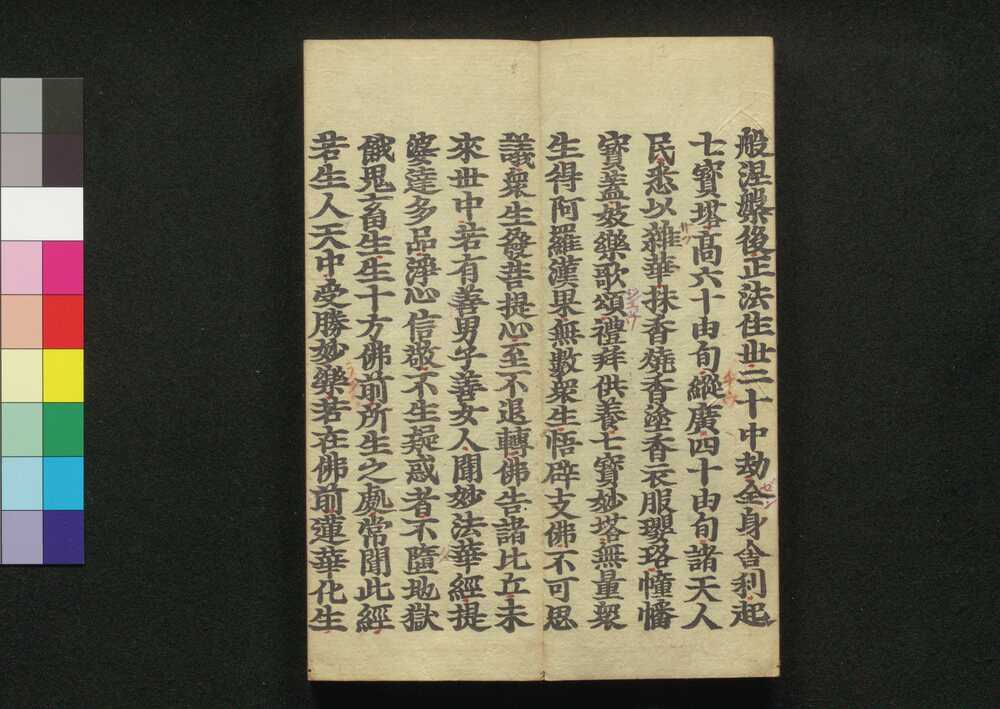 般涅槃後正法住世二十中劫全身舍利起
七寶塔高六十由旬縱廣四十由旬諸天人
民悉以雜華抹香燒香塗香衣服瓔珞幢幡
寶蓋妓樂歌頌禮拜供養七寶妙塔無量衆
生得阿羅漢果無數衆生悟辟支佛不可思
議衆生發菩提心至不退轉佛告諸比丘未
來世中若有善男子善女人聞妙法華經提
婆達多品淨心信敬不生疑惑者不墮地獄
餓鬼畜生生十方佛前所生之處常聞此經
若生人天中受勝妙樂若在佛前蓮華化生